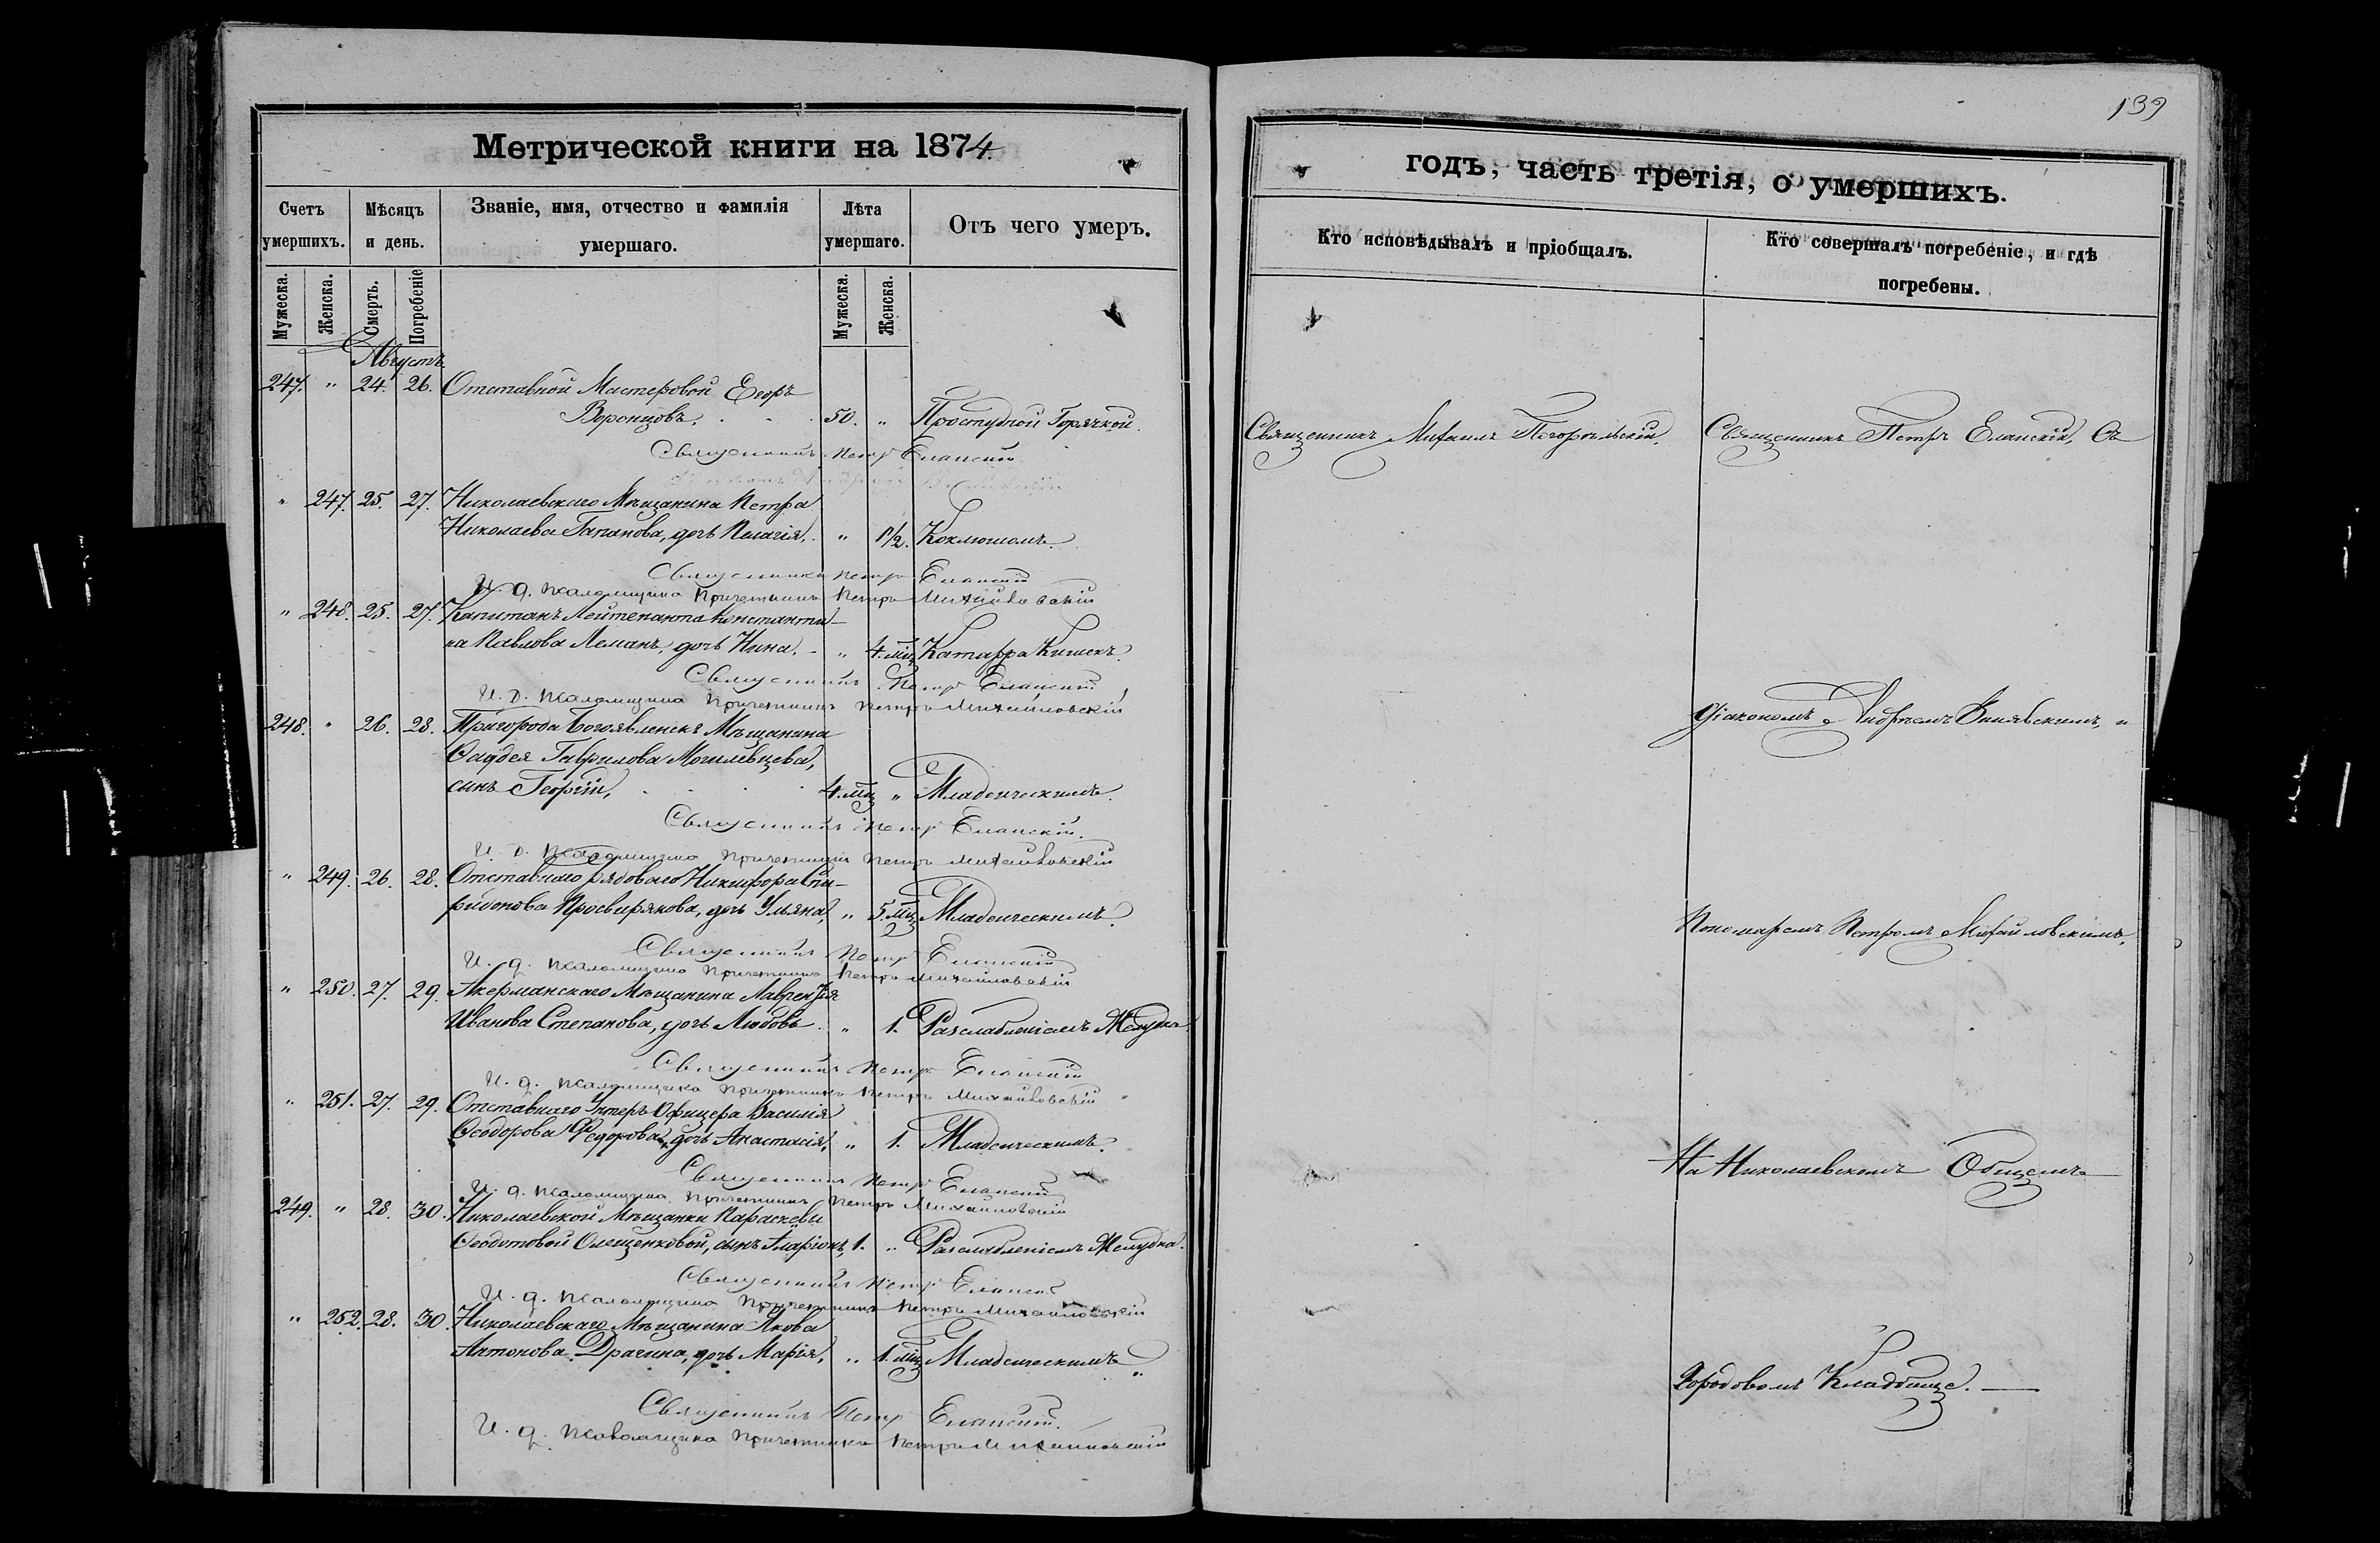 139
Метрической книги на 1874.
годъ, часть третія, о умершихъ.
Счетъ умершихъ.
Мѣсяцъ и день.
Званіе, имя, отчество и фамилія умершаго.
Лѣта умершаго.
Отъ чего умеръ.
Кто исповѣдывалъ и пріобщалъ.
Кто совершалъ погребеніе, и гдѣ погребены.
Мужеска. Женска. Смерть. Погребеніе. Мужеска. Женска.
Августъ
247. " 24. 26. Отставной Мастеровой Егоръ
Воронцовъ. 50. " Простудной Горячкой.
Священникъ Петръ Еланскій
" 247. 25. 27. Николаевскаго Мѣщанина Петра
Николаева Гапанова, дочь Пелагія, " 1½. Коклюшомъ.
Священникъ Петръ Еланскій
И. д. псаломщика Причетникъ Петръ Михайловскій
" 248. 25. 27. Капитанъ Лейтенанта Константи-
на Павлова Леманъ, дочь Нина. " 4. мц Катарра Кишекъ.
Священникъ Петръ Еланскій
И. д. псаломщика Причетникъ Петръ Михайловскій
248. " 26. 28. Пригорода Богоявленскъ Мѣщанина
Фаддея Гаврилова Могилевцева,
сынъ Георгій, 4. мц " Младенческимъ.
Священникъ Петръ Еланскій.
И. д. псаломщика Причетникъ Петръ Михайловскій
" 249. 26. 28. Отставнаго рядоваго Никифора Спи-
ридонова Просвирякова, дочь Ульяна, " 5. мц Младенческимъ.
Священникъ Петръ Еланскій
И. д. псаломщика Причетникъ Петръ Михайловскій
" 250. 27. 29. Акерманскаго Мѣщанина Лаврентія
Иванова Степанова, дочь Любовь. " 1. Разслабленіемъ Желудка
Священникъ Петръ Еланскій
И. д. псаломщика Причетникъ Петръ Михайловскій
" 251. 27. 29. Отставнаго Унтеръ Офицера Василія
Ѳеодорова Федорова, дочь Анастасія, " 1. Младенческимъ.
Священникъ Петръ Еланскій
И. д. псаломщика Причетникъ Петръ Михайловскій
249. " 28. 30. Николаевской Мѣщанки Параскевы
Ѳеодотовой Олещенковой, сынъ Иларіонъ, 1. " Разслабленіемъ Желудка.
Священникъ Петръ Еланскій
И. д. псаломщика Причетникъ Петръ Михайловскій
" 252. 28. 30. Николаевскаго Мѣщанина Якова
Антонова Драгина, дочь Марія, " 1. мц Младенческимъ
Священникъ Петръ Еланскій.
И. д. псаломщика Причетникъ Петръ Михайловскій
Священникъ Михаилъ Погорѣльскій.
Священникъ Петръ Еланскій, Съ
Діакономъ Андреемъ и
Пономаремъ Петромъ Михайловскимъ,
На Николаевскомъ Общемъ
Городовомъ Кладбище.